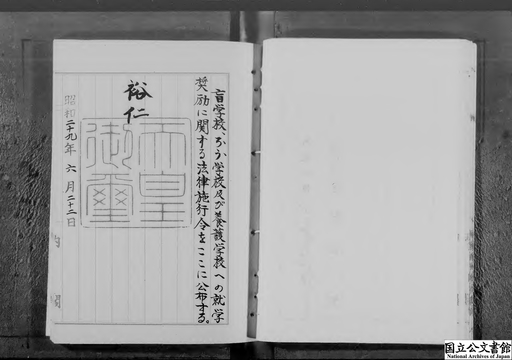 盲学校、ろう学校及び養護学校への就学
奨励に関する法律施行令をここに公布する。
裕仁
天皇御璽
昭和二十九年六月二十二日
国立公文書館
National Archives of Japan